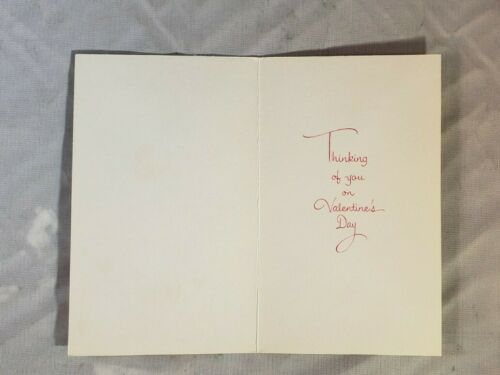 Thinking
of you
on
Valentine's
Day